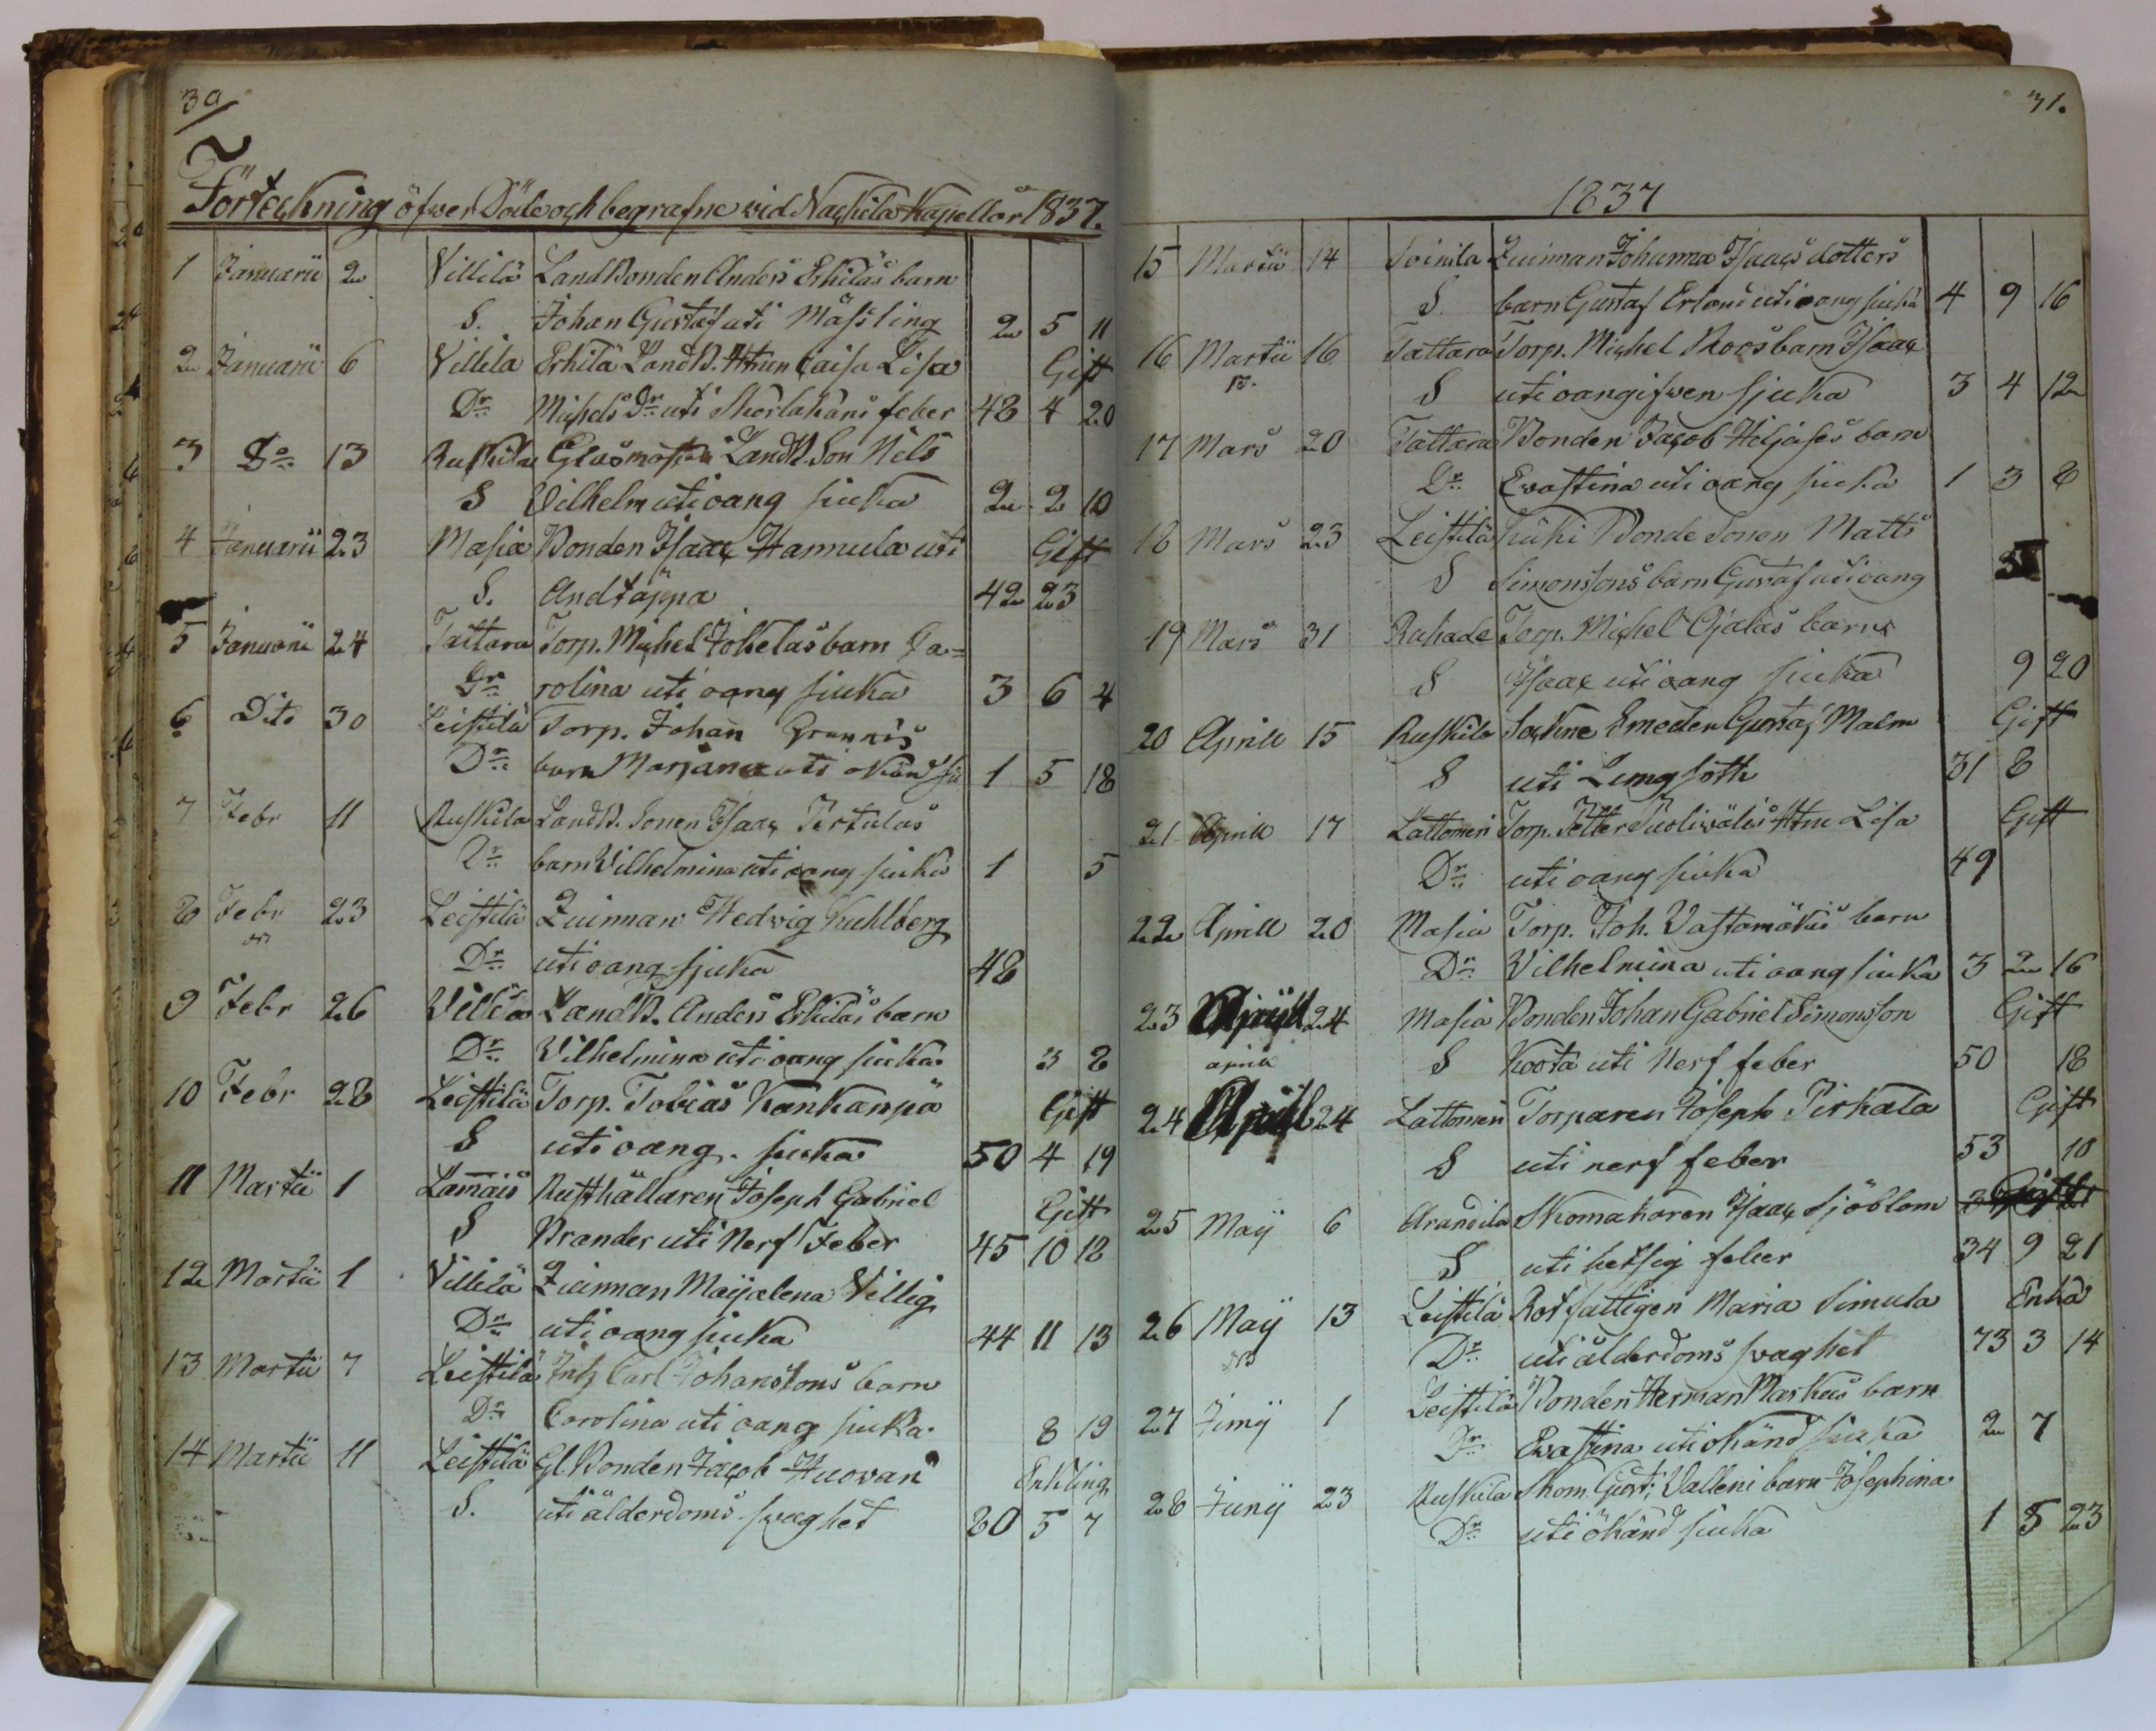 30
Förteckning öfwer Döde och begrafne vid Nackila Kapell år 1837.
1 Januarii 2 Villilä LandBonden Anders Erkiläs barn
S. Johan Gustaf uti Mässling 2 5 11
2 Januarii 6 Villila Erkilä LandB. Hustrun Caisa Lisa Gift
Dr Michels Dr uti Skarlakans feber 48 4 20
3 Do 13 Ruskila LandB. Son Nils
S Vilhelm uti oang siuka 2 2 10
4 Januarii 23 Masia Bonden Isaac Hannula uti Gift
S. Andtäppa 42 23
5 Januarii 24 Tattara Torp. Michel Jokelas barn Ca=
Dr rolina uti oang siuka 3 6 4
6 Dito 30 Leistilä Torp. Johan
Dr barn Marjana uti okänd siu 1 5 18
7 Febr 11 Ruskila LandB. Sonen Isaac Pertulas
Dr barn Vilhelmina uti oang siuka 1 5
8 Febr 23 Leistilä Quinnan Hedvig Kuhlberg
Dr uti oang sjuka 48
9 Febr 26 Villila LandB. Anders Erkiläs barn
Dr Vilhelmina uti oang siuka 3 8
10 Febr 28 Leistilä Torp. Tobias Kankanpä Gift
S uti oang. siuka 50 4 19
11 Martii 1 Lamais Rusthållaren Joseph Gabriel Gift
S Brander uti Nerf Feber 45 10 12
12 Martii 1 Villilä Quinnan Maijalena Villig
Dr uti oang siuka 44 11 13
13 Martii 7 Leistilä Inh Carl Johanssons barn
Dr Carolina uti oang siuka 8 19
14 Martii 11 Leistilä Gl. Bonden Jacob Huovari Enkling
S. uti ålderdoms svaghet 80 5 7
31.
1837
15 Martii 14 Soinila Quinnan Johanna Isaacs dotters
S. barn Gustaf Erland uti oang siuka 4 9 16
16 Martii 16 Tattara Torp. Michel Roos barn Isaac
S uti oangifwen sjuka 3 4 12
17 Mars 20 Tattara Bonden Jacob Hiljases barn
Dr Evastina uti oang siuka 1 3 8
18 Mars 23 Leistilä Bonde Sonen Matts
S Simonssons barn Gustaf uti oang
19 Mars 31 Rahade Torp. Michel Ojalas barn
S Isaac uti oang siuka 9 20
20 Aprill 15 Ruskila Sockne Smeden Gustaf Malm Gift
S uti Lungsoth 31 8
21 Aprill 17 Lattomeri Torp. Petter Puoliwälis Hustru Lisa Gift
Dr uti oang siuka 49
22 Aprill 20 Masia Torp. Joh. Vastamäkis barn
Dr Vilhelmina uti oang siuka 3 2 16
23 Aprill 24 Masia Bonden Johan Gabriel Simonsson Gift
aprill S Koota uti Nerf feber 50 18
24 Aprill 24 Lattomeri Torparen Joseph Pirkala Gift
S uti nerf feber 53 10
25 Maij 6 Arandila Skomakaren Isaac Sjöblom
S uti hetsig feber 34 9 21
26 Maij 13 Leistilä Rotfattigen Maria Simula Enka
Dr uti ålderdoms svaghet 73 3 14
27 Junij 1 Leistilä Bonden Herman Markus barn
Dr Evastina uti okänd siuka 2 7
28 Junij 23 Ruskila Skom. Gust: Valleni barn Josephina
Dr uti okänd siuka 1 5 23